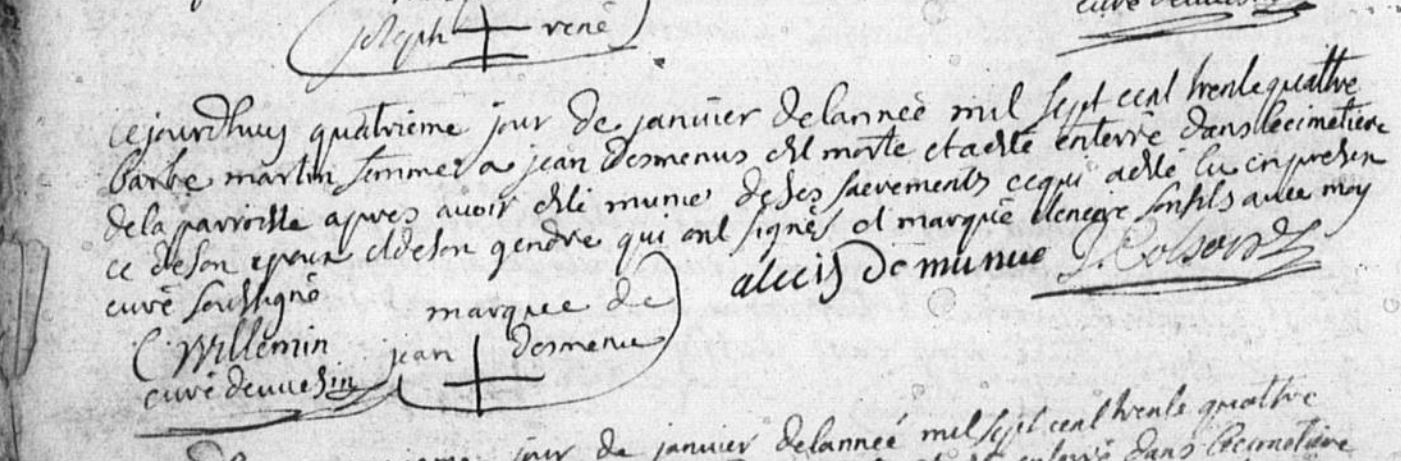 curé
joseph rené
cejourdhuy quatrieme jour de janvier delanneé mil sept cent trente quattre
barbe martin femme a jean desmenus est morte et a esté enterré dans lecimetiere
de la parroisse apres avoir esté munie de ses sacrements cequi a esté lu en presen
ce deson epoux et deson gendre qui ont signés et marqué encore son fils avec moy
curé soussigné
alecis demunue J. Colson
marque de
jean desmenu
C Willemin
curé de
jour de janvier delanneé mil sept cent trente quattre
enterré dans lecimetiere